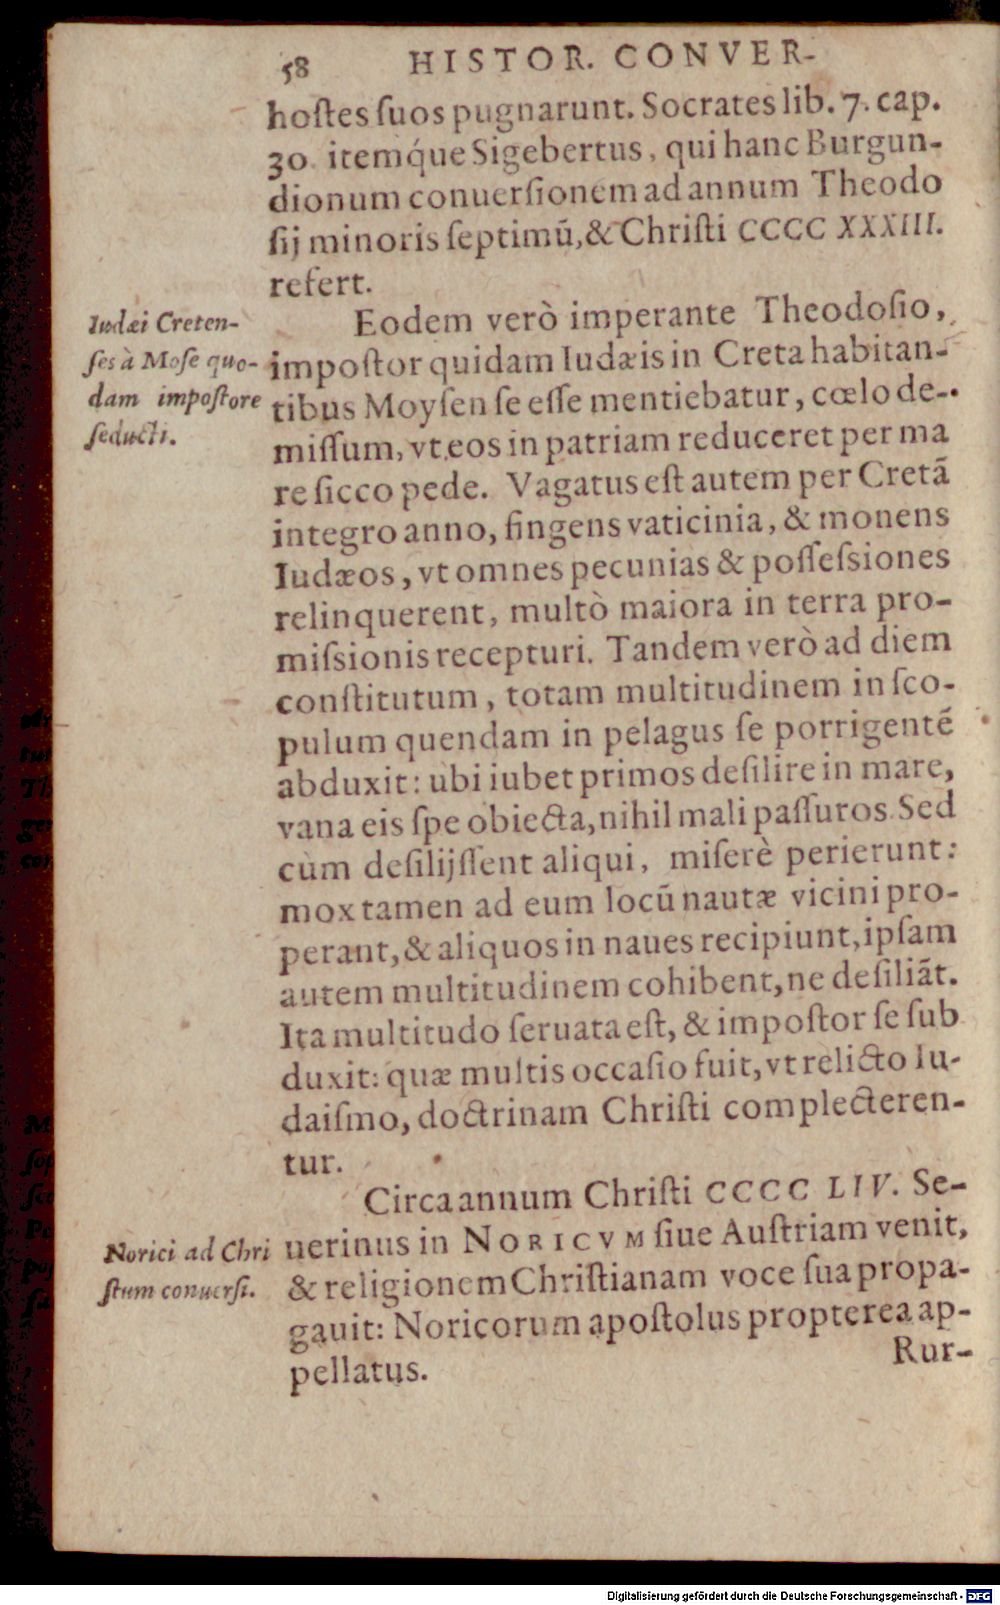 58 HISTOR. CONVER-
hostes suos pugnarunt. Socrates lib. 7. cap.
30. itemq́ue Sigebertus, qui hanc Burgun-
dionum conuersionem ad annum Theodo
sij minoris septimũ, & Christi CCCC XXXIII.
refert.
Iudæi Creten-
ses à Mose quo-
dam impostore
seducti.
Eodem verò imperante Theodosio,
impostor quidam Iudæis in Creta habitan-
tibus Moysen se esse mentiebatur, cœlo de-
missum, vt eos in patriam reduceret per ma
re sicco pede. Vagatus est autem per Cretã
integro anno, fingens vaticinia, & monens
Iudæos, vt omnes pecunias & possessiones
relinquerent, multò maiora in terra pro-
missionis recepturi. Tandem verò ad diem
constitutum, totam multitudinem in sco-
pulum quendam in pelagus se porrigentẽ
abduxit: ubi iubet primos desilire in mare,
vana eis spe obiecta, nihil mali passuros. Sed
cùm desilijssent aliqui, miserè perierunt:
mox tamen ad eum locũ nautæ vicini pro-
perant, & aliquos in naues recipiunt, ipsam
autem multitudinem cohibent, ne desiliãt.
Ita multitudo seruata est, & impostor se sub
duxit: quæ multis occasio fuit, vt relicto Iu-
daismo, doctrinam Christi complecteren-
tur.
Norici ad Chri
stum conuersi.
Circa annum Christi CCCC LIV. Se-
uerinus in NORICVM siue Austriam venit,
& religionem Christianam voce sua propa-
gauit: Noricorum apostolus propterea ap-
pellatus.
Rur-
Digitalisierung gefördert durch die Deutsche Forschungsgemeinschaft - DFG